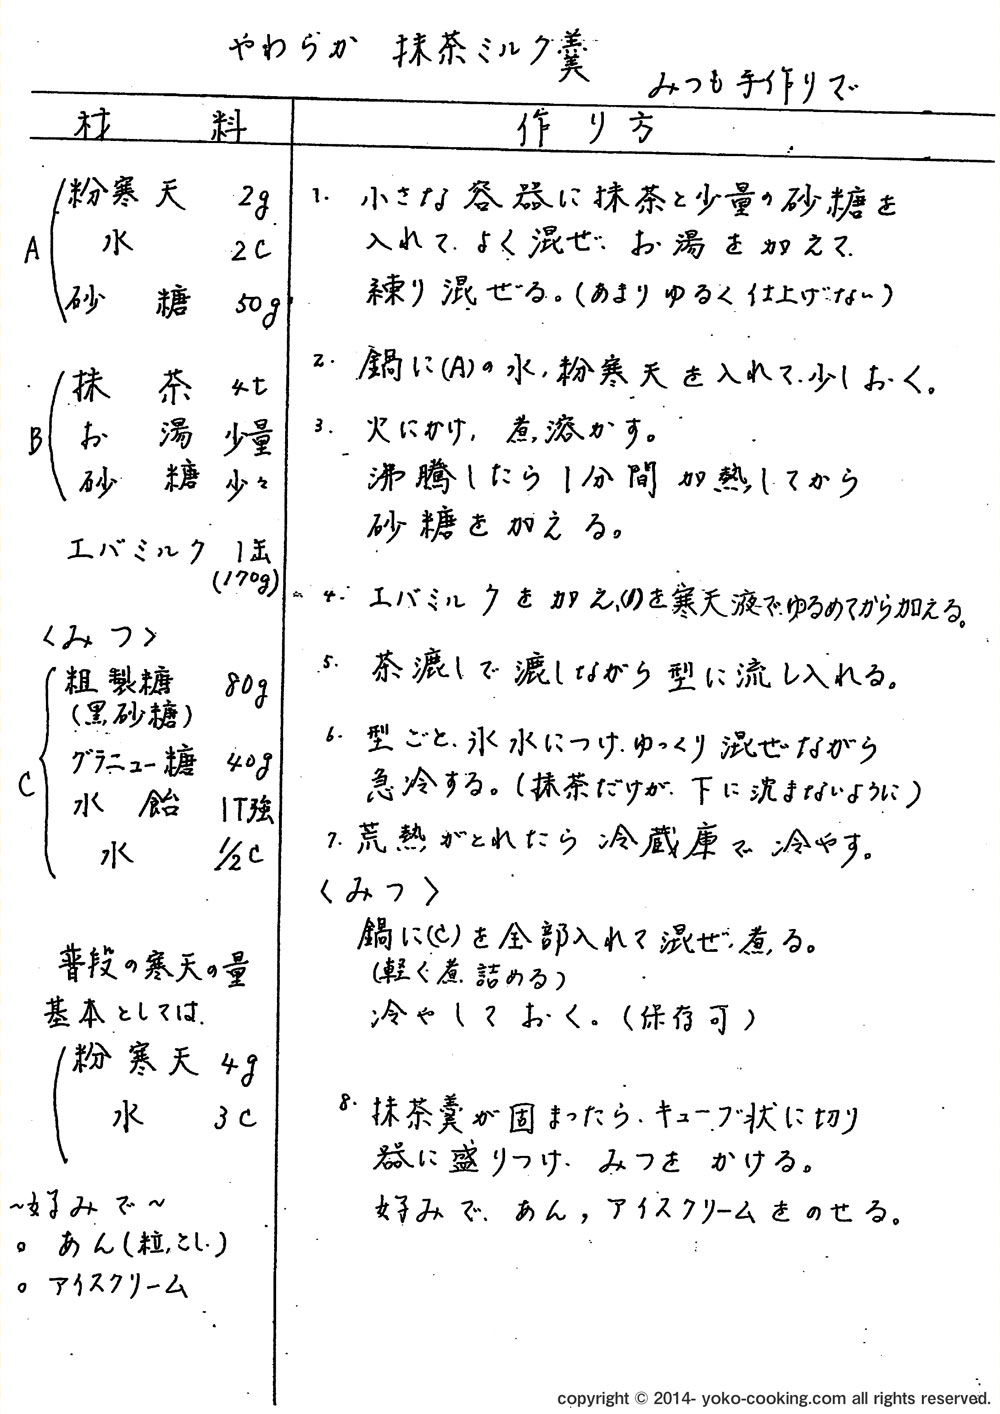 やわらか 抹茶ミルク羹
みつも手作りで
材 料
作 り 方
A
粉寒天 2g
水 2C
砂 糖 50g
B
抹 茶 4t
お 湯 少量
砂 糖 少々
エバミルク 1缶
(170g)
〈みつ〉
C
粗製糖 80g
(黒砂糖)
グラニュー糖 40g
水 飴 1T強
水 1/2C
普段の寒天の量
基本としては、
粉寒天 4g
水 3C
~好みで~
。あん(粒,こし)
。アイスクリーム
1. 小さな容器に抹茶と少量の砂糖を
入れて、よく混ぜ、お湯を加えて、
練り混ぜる。(あまりゆるく仕上げない)
2. 鍋に(A)の水、粉寒天を入れて、少しおく。
3. 火にかけ、煮溶かす。
沸騰したら1分間加熱してから
砂糖を加える。
4. エバミルクを加え、(1)を寒天液でゆるめてから加える。
5. 茶漉しで漉しながら型に流し入れる。
6. 型ごと、氷水につけ、ゆっくり混ぜながら
急冷する。(抹茶だけが、下に沈まないように)
7. 荒熱がとれたら冷蔵庫で冷やす。
〈みつ〉
鍋に(C)を全部入れて混ぜ、煮る。
(軽く煮詰める)
冷やしておく。(保存可)
8. 抹茶羹が固まったら、キューブ状に切り
器に盛りつけ、みつをかける。
好みで、あん,アイスクリームをのせる。
copyright © 2014- yoko-cooking.com all rights reserved.